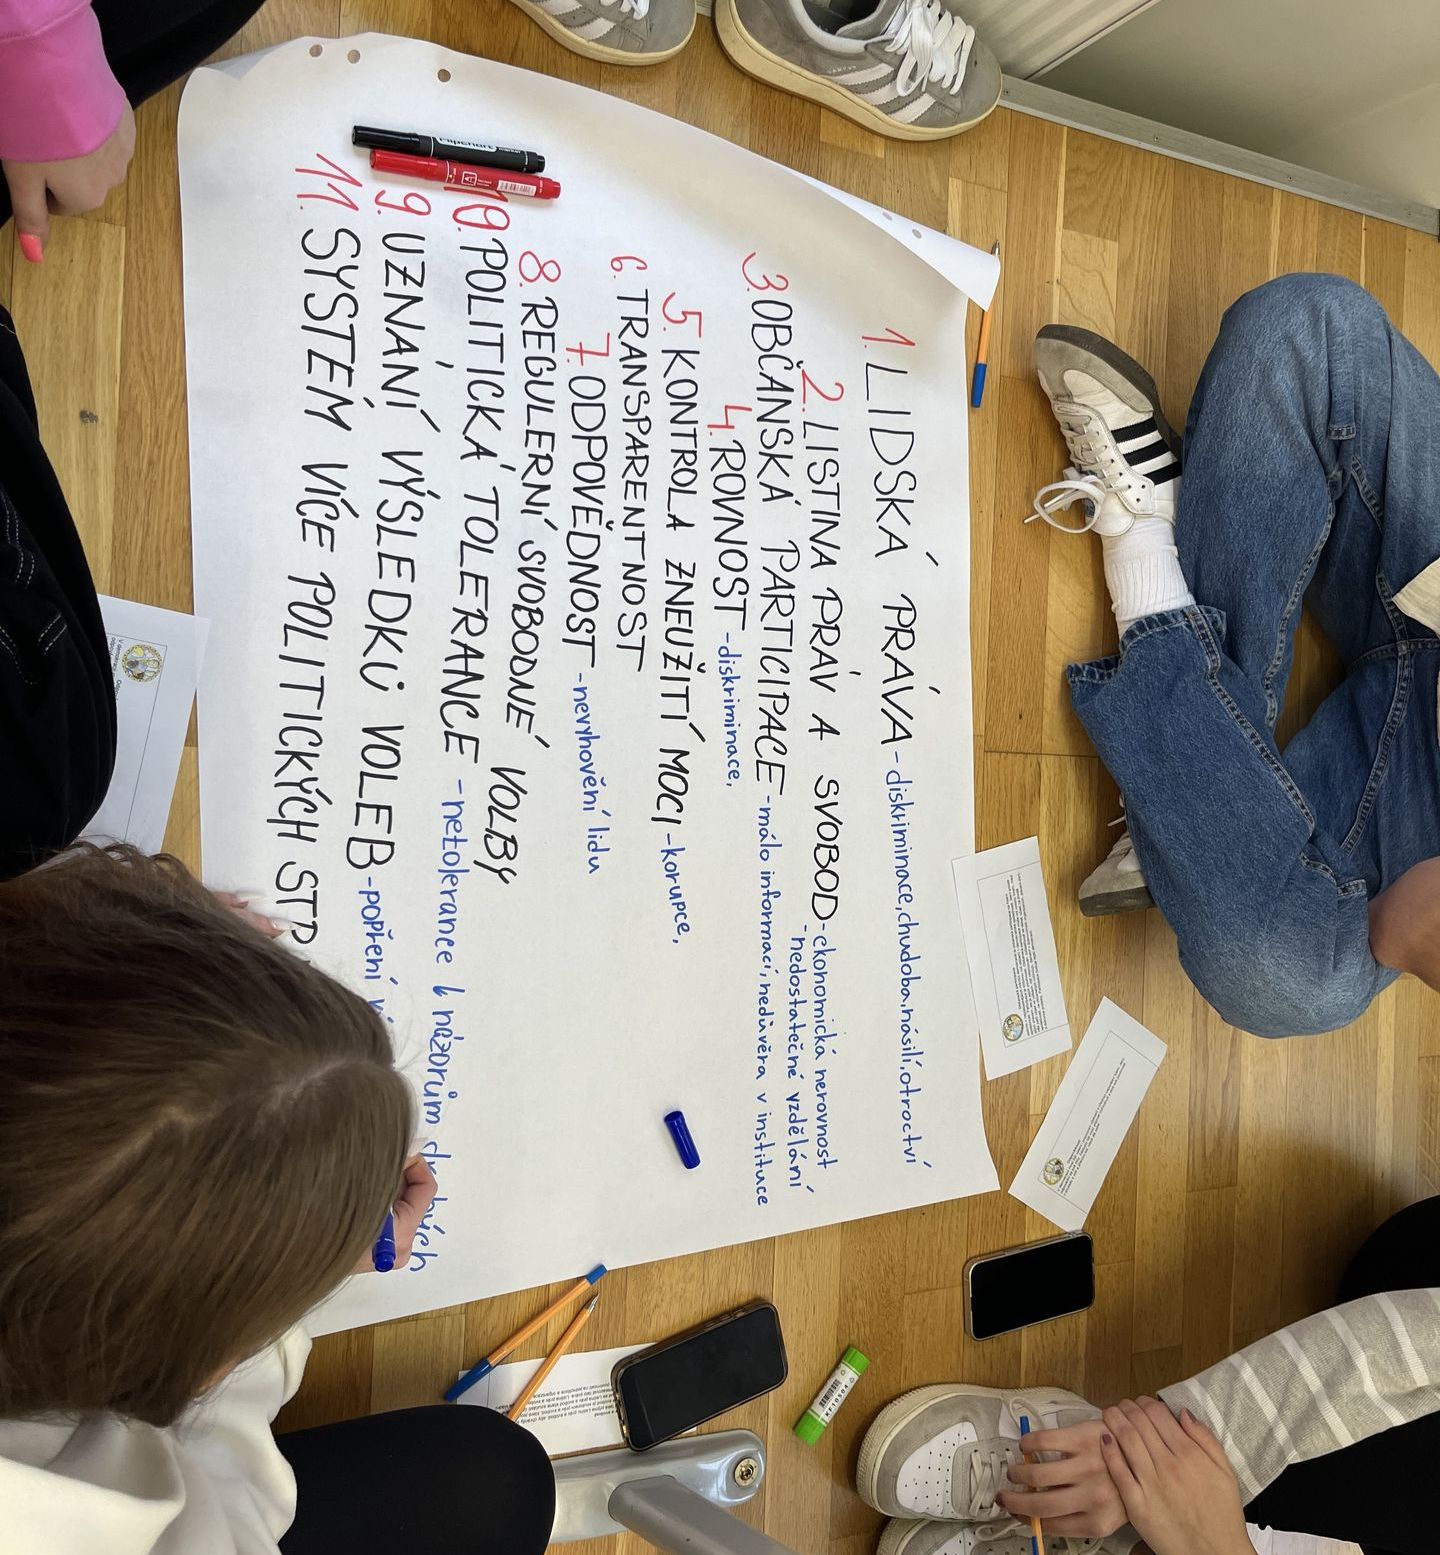 1. LIDSKÁ PRÁVA - diskriminace, chudoba, násilí, otroctví
2. LISTINA PRÁV A SVOBOD - ekonomická nerovnost
- nedostatečné vzdělání
3. OBČANSKÁ PARTICIPACE - málo informací, nedůvěra v instituce
4. ROVNOST - diskriminace,
5. KONTROLA ZNEUŽITÍ MOCI - korupce,
6. TRANSPARENTNOST
7. ODPOVĚDNOST - nevyhovění lidu
8. REGULERNÍ SVOBODNÉ VOLBY
10. POLITICKÁ TOLERANCE - netolerance k názorům
9. UZNÁNÍ VÝSLEDKŮ VOLEB - popření
11. SYSTÉM VÍCE POLITICKÝCH
Flipchart